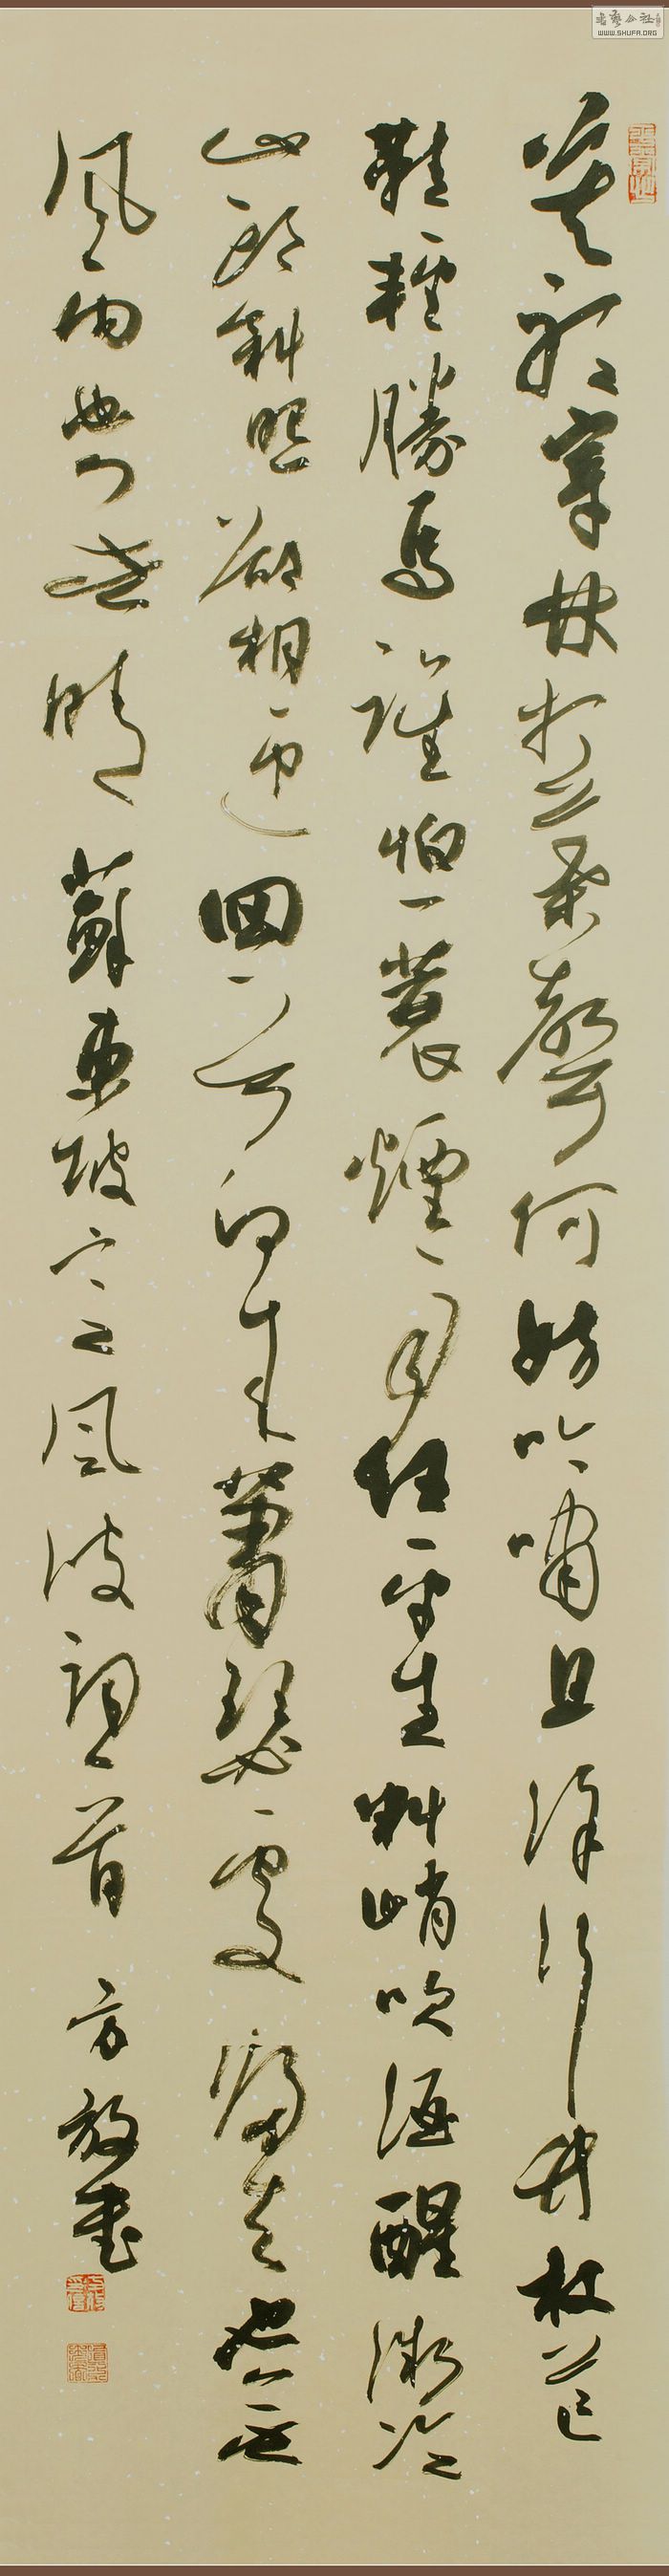 书艺公社
WWW.SHUFA.ORG
莫聽穿林打葉聲何妨吟嘯且徐行竹杖芒
鞋輕勝馬誰怕一蓑煙雨任平生料峭吹酒醒微冷
山頭斜照却相迎回首向來蕭瑟處歸去也無
風雨也無晴 蘇東坡定風波詞一首 方放書